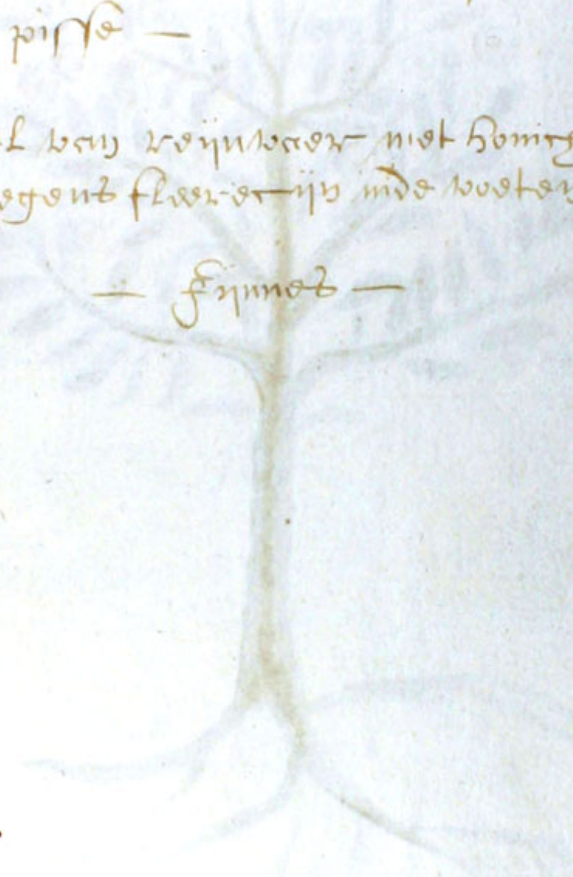 pisse —
l van reijnvaer met honig
egens fleerecijn inde voeten
— ffijnnes —